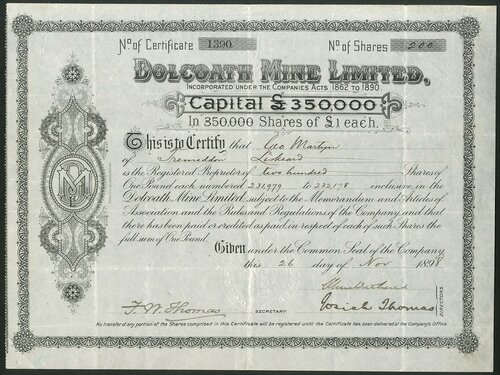 No. of Certificate 1390 No. of Shares 200
DOLCOATH MINE LIMITED,
INCORPORATED UNDER THE COMPANIES ACTS 1862 TO 1890
Capital £350,000
In 350,000 Shares of £1 each.
This is to Certify that Geo Martyn
of Tremeddon Liskeard
is the Registered Proprietor of two hundred Shares of
One Pound each numbered 231,979 to 232,178 inclusive, in the
Dolcoath Mine Limited, subject to the Memorandum and Articles of
Association and the Rules and Regulations of the Company and that
there has been paid or credited as paid, in respect of each of such Shares the
full sum of One Pound.
Given under the Common Seal of the Company
this 26 day of Nov 1898
F. W. Thomas SECRETARY. Josiah Thomas DIRECTORS.
No transfer of any portion of the Shares comprised in this Certificate will be registered until the Certificate has been delivered at the Company's Office.